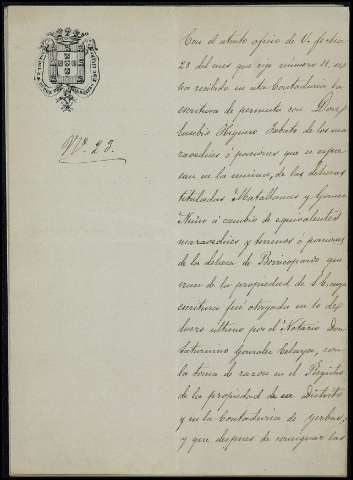 Nº. 23.
Con el atento oficio de V. fecha
28 del mes que rije número 11, se
ha recibido en esta Contaduría la
escritura de permuta con Don
Eusebio Higuero Zabato de los ma
ravedises ó porciones que se expre
san en la misma, de las dehesas
tituladas Matallanas y Gomez
Nuño á cambio de equivalentes
maravedises y terrenos ó porciones
de la dehesa de que
eran de la propiedad de S. E. cuya
escritura fué otorgada en
último por el Notario Don
Saturnino Gonzalez con
la toma de razon en el Registro
de la propiedad de ese Distrito
y en la Contaduría de
y que despues de consignar las